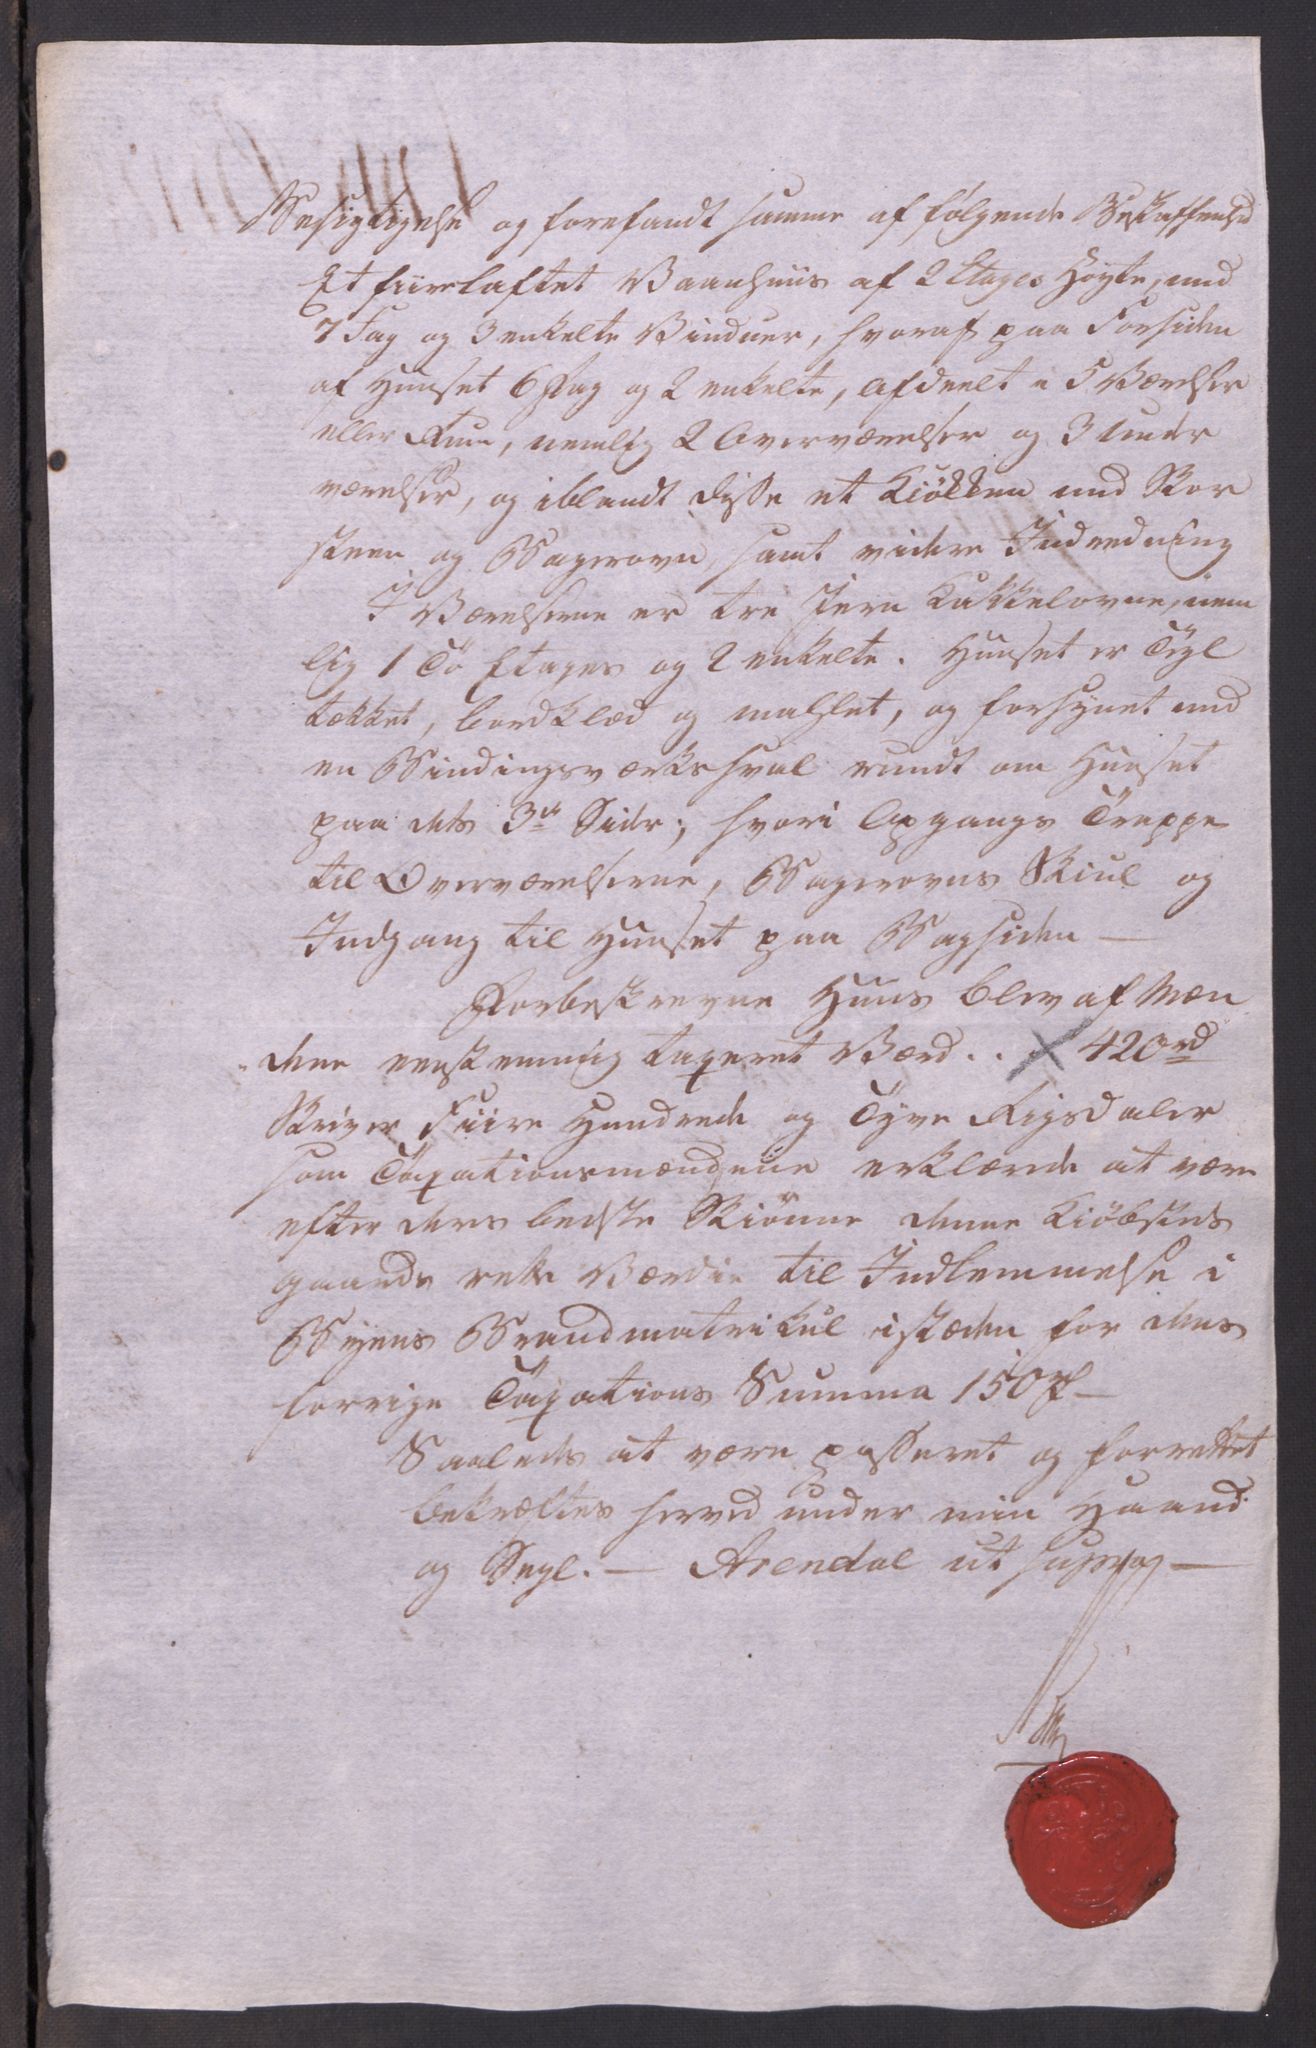 Besigtigelse og forefandt samme af følgende Beskaffenhed
Et fiirlaftet Vaanhuus af 2 Etages Høyde, med
7 Fag og 3 enkelte Vinduer, hvoraf paa Forsiden
af Huuset 6 Fag og 2 enkelte, afdeelt i 5 Værelser
eller Rum, nemlig 2 Overværelser og 3 Under
værelser, og iblandt disse et Kiökken med Skor
steen og Bagerovn, samt videre Indredning
I Værelserne er tre Jern Kakkelovne, nem
lig 1 To Etages og 2 enkelte. Huuset er Tegl
tækket, bordklæd og mahlet, og forsynet med
en Bindingsværks Sval rundt om Huuset
paa dets 3de Sider; hvori Opgangs Trappe
til Overværelserne, Bagerovns Skiul og
Indgang til Huuset paa Bagsiden —
Forbeskrevne Huus blev af Mæn
dene eenstemmig taxeret Værd . . 420 rd
Skriver Fiire Hundrede og Tyve Rigsdaler
som Taxationsmændene erklærede at være
efter deres bedste Skiönne denne Kiöbsteds
gaards rette Værdie til Indlemmelse i
Byens Brandmatrikul istæden for dens
forrige Taxations Summa 150 rd —
Saaledes at være passeret og forrettet
bekræftes herved under min Haand
og Segl. — Arendal ut supra —